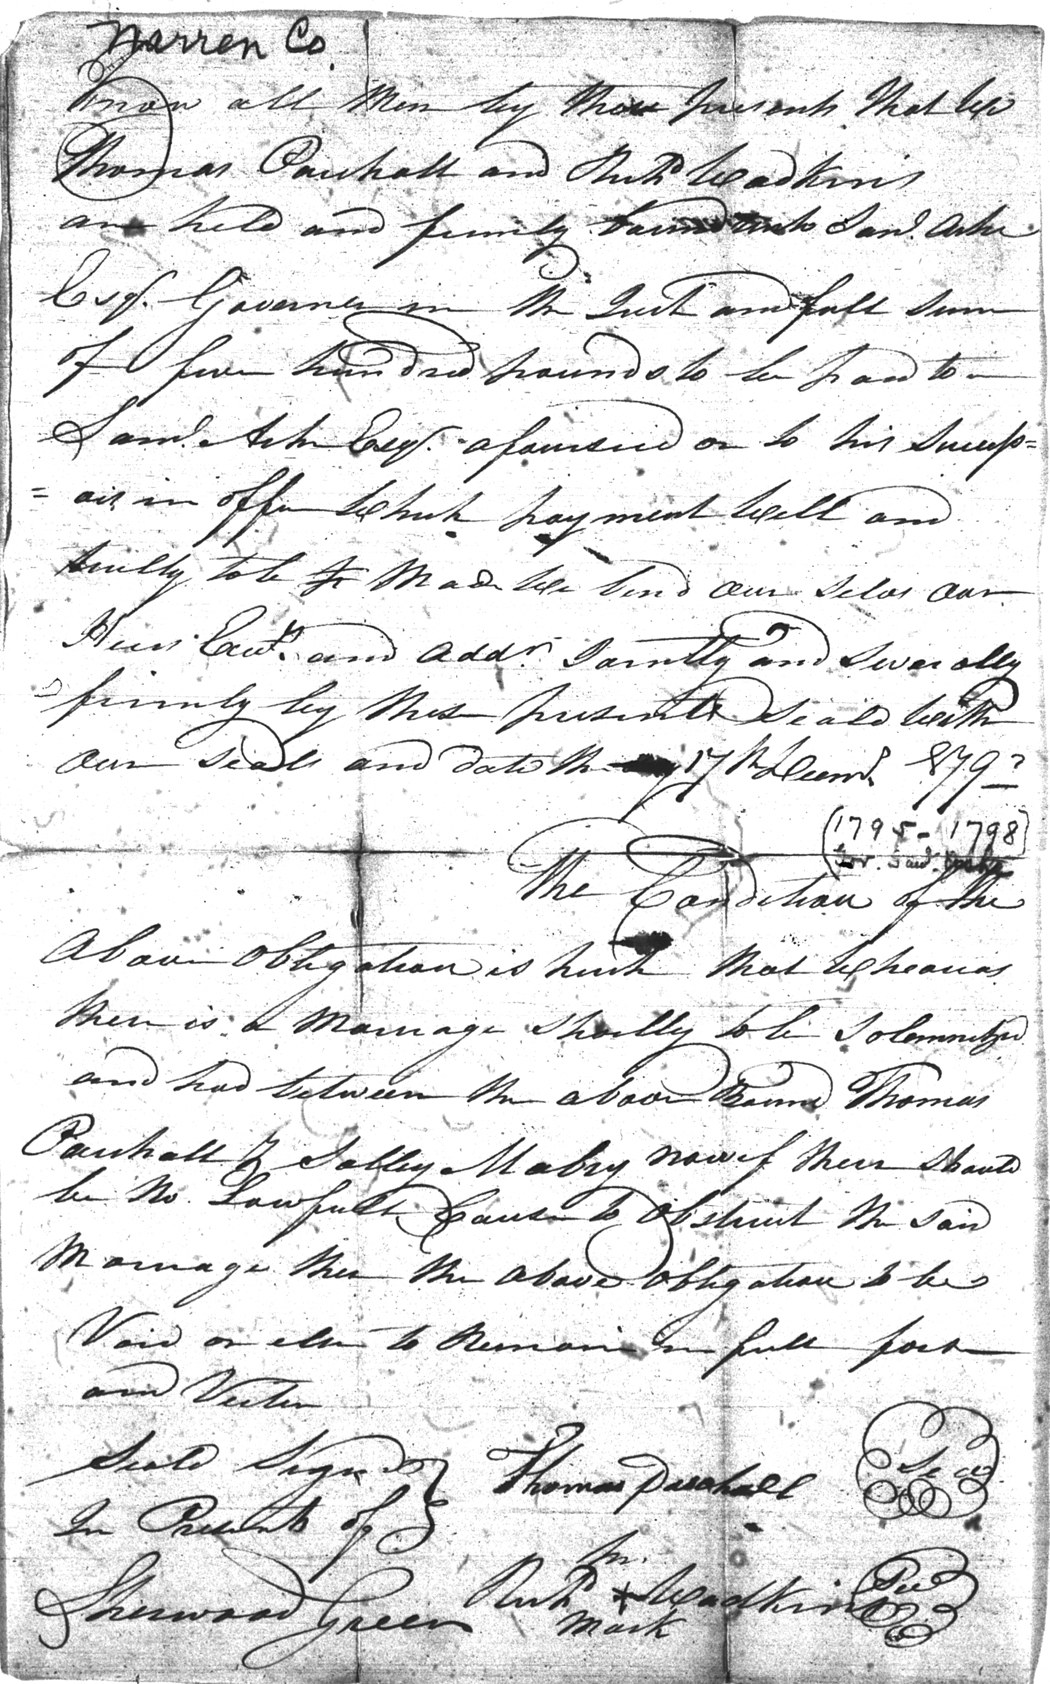 Warren Co.
Know all Men by these presents that We
Thomas Paschall and Richd Wadkins
are held and firmly bound unto Saml. Ashe
Esqr. Governer in the Just and full sum
of five hundred pounds to be paid to
Saml. Ashe Esqr. aforesaid or to his Success=
=ors in office Which payment Well and
trully to be Made We bend our selves our
Heirs Exrs. and Addrs. Jointly and Severally
firmly by these presents Seald With
our Seals and date the 17th Decemr. 179?
(1795-1798)
Gov. Saml. Ashe
The Condition of the
Above Obligation is such that Wheareas
there is a Marriage Shortly to be Solemnized
and had between the above Bound Thomas
Paschall & Salley Mabry now if there should
be No Lawfull Cause to Obstruct the said
Marriage then the Above Obligation to be
Void or else to Remain in full force
and Vertue
Seald Signd
In Presents of
Thomas Paschall Seal
Sherwood Green
Richd X Wadkins Seal
mark